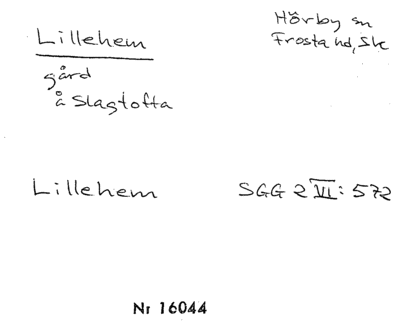 Lillehem
Hörby sn
Frosta hd, Sk
gård
å Slagtofta
Lillehem
SGG 2 VI: 572
Nr 16044